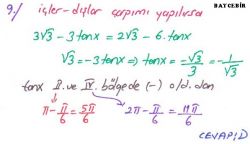 BAYCEBİR
9./ içler-dışlar çarpımı yapılırsa
3√3 - 3tanx = 2√3 - 6.tanx
√3 = -3tanx ⇒ tanx = -√3/3 = -1/√3
tanx II. ve IV. bölgede (-) old. olan
π - π/6 = 5π/6   2π - π/6 = 11π/6
CEVAP: D